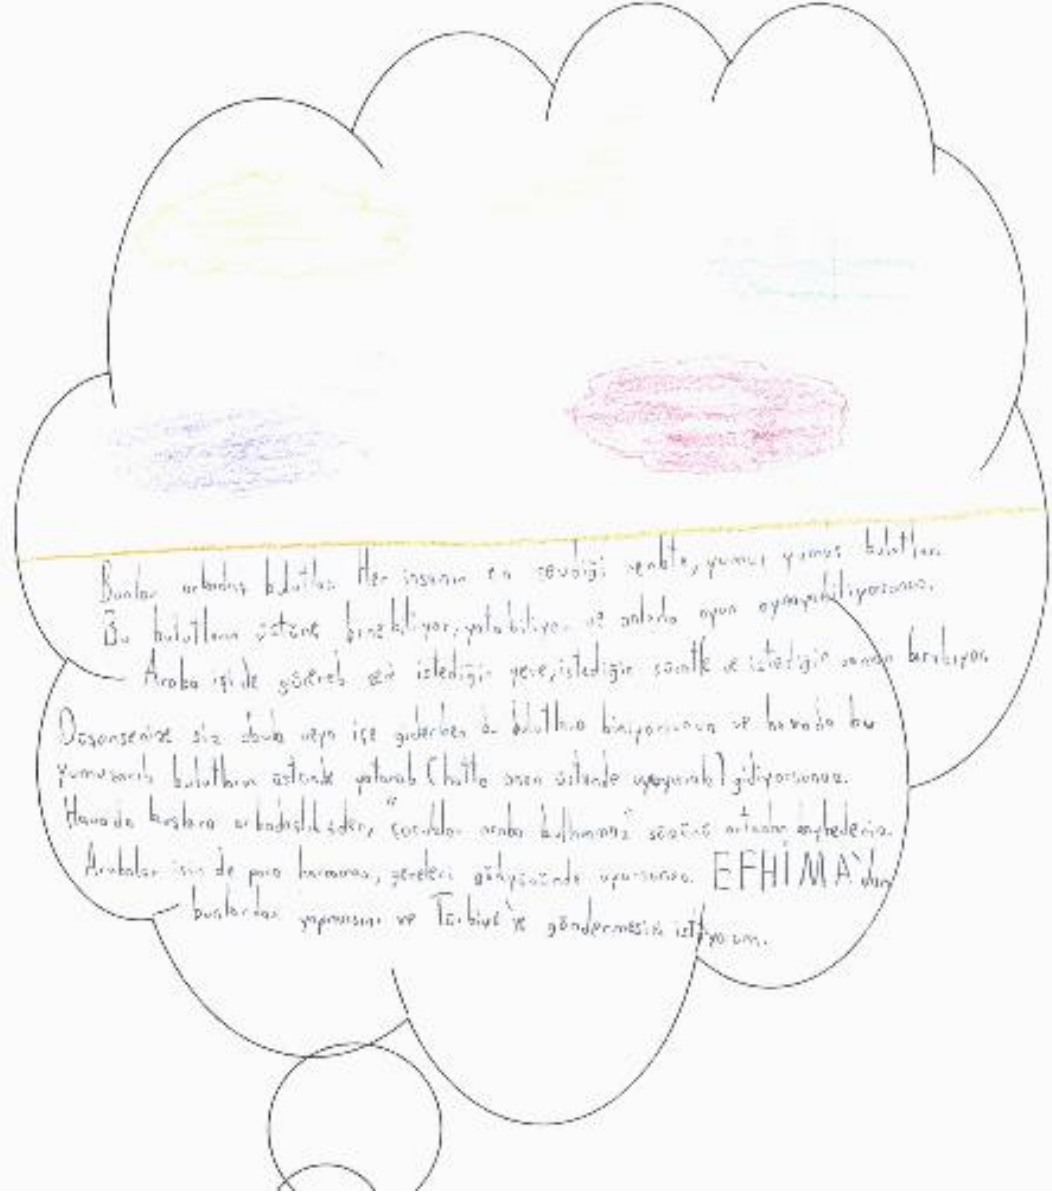 Bunlar arkadaş bulutlar. Her insanın en sevdiği renkte, yumuş yumuş bulutlar.
Bu bulutların üstüne binebiliyor, yatabiliyor ve onlarla oyun oynayabiliyorsunuz.
Araba işi de görerek sizi istediğin yere, istediğin süratle ve istediğin zaman bırakıyor.
Düşünsenize siz okula veya işe giderken bu bulutlara biniyorsunuz ve havada bu
yumuşacık bulutların üstünde yatarak (hatta onun üstünde uyuyarak) gidiyorsunuz.
Havada kuşlara arkadaşlık eder, "çocuklar araba kullanamaz" sözünü ortadan kaybederiz.
Arabalar için de para harcamaz, geceleri gökyüzünde uyursunuz. EFHİMAY'dan
bunlardan yapmasını ve Türkiye'ye göndermesini istiyorum.